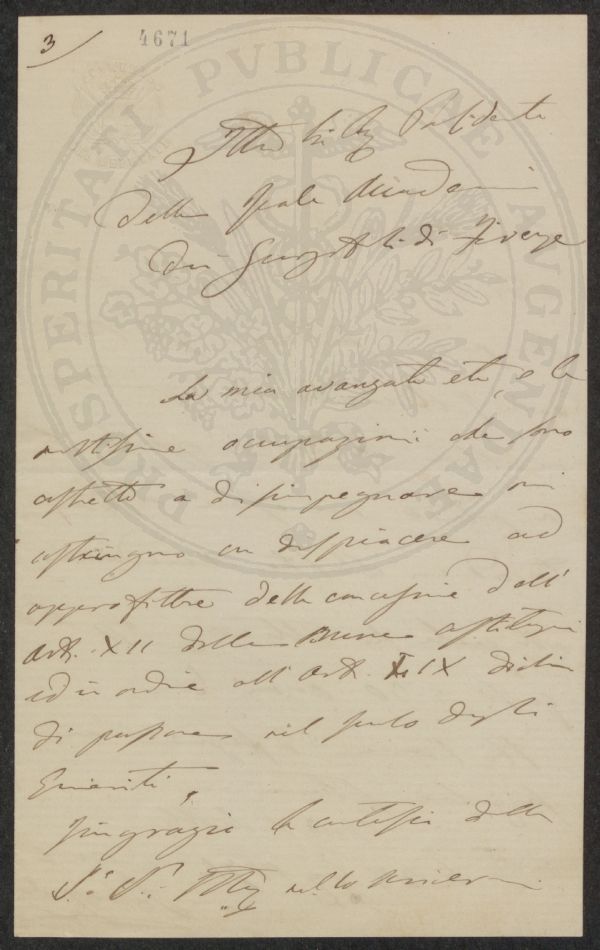 3
4671
PROSPERITATI PVBLICAE AVGENDAE
Presidente
della Reale Accademia
dei Georgofili di Firenze
La mia avanzata età, e le
moltissime occupazioni che sono
astretto a disimpegnare mi
astringono con dispiacere ad
approfittare della concessione dell'
Art. XII delle
ed in ordine all' Art. IX
di passare nel ruolo degli
Emeriti.
Ringrazio la cortesia della
S.a V.a Ill.ma nello